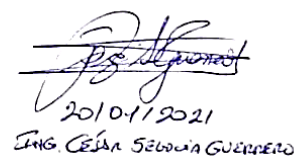 20/04/2021
ING. CÉSAR SEGOVIA GUERRERO